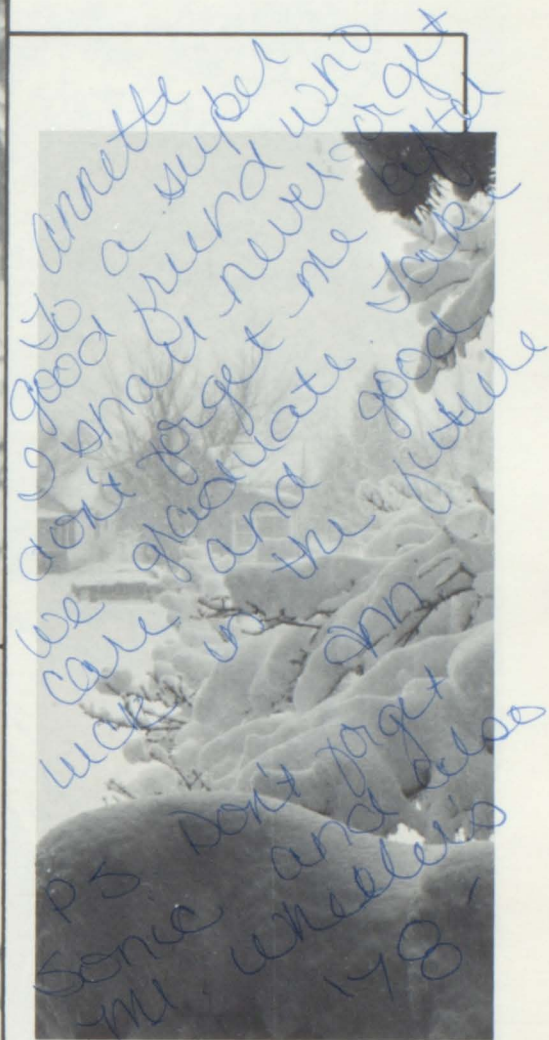 Annette
To a super
good friend who
I shall never forget
don't forget me after
we graduate Take
care and good
luck in the future
Ann
PS Don't forget
Sonic and also
Mr. Wheelers
'78